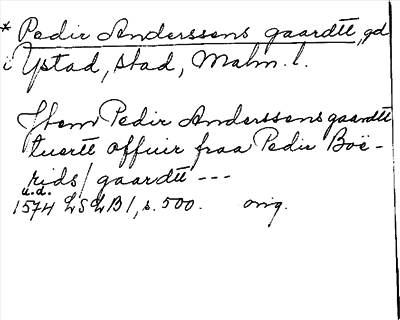 * Pedir Anderssens gaardtt, gd
i Ystad, stad, Malm. l.
Item Pedir Anderssens gaardtt
tuertt offuir fraa Pedir Boë-
rids/ gaardtt ---
u.d.
1574 LSLB1, s. 500. orig.